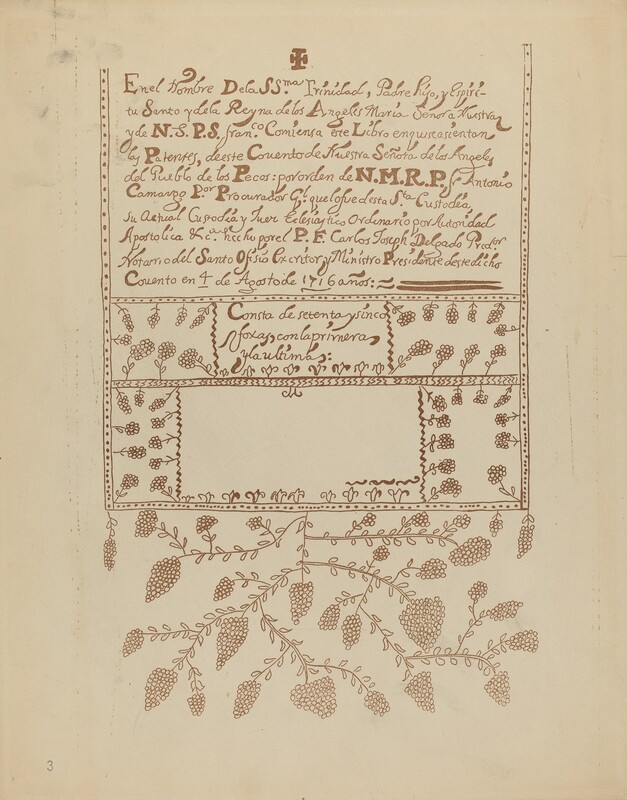 En el Nombre Dela SS.ma Trinidad, Padre hijo, y Espiri-
tu Santo y dela Reyna delos Angeles Maria Señora Nuestra
y de N. S. P. S. fran.co Comiensa este Libro enquese asientan
las Patentes, de este Convento de Nuestra Señora de los Angeles
del Pueblo de los Pecos: por orden de N. M. R. P. fr Antonio
Camargo P.or Procurador G.l que lo fue desta S.ta Custodia,
su Actual Custodio y Juez Eclesiastico Ordinario por Autoridad
Apostolica &c.a hecho por el P. F. Carlos Joseph Delgado
Notario del Santo Ofisio Escritor y Ministro Presidente deste dicho
Convento en 4 de Agosto de 1716 años:
Consta de setenta y sinco
foxas, con la primera
y la ultima:
3